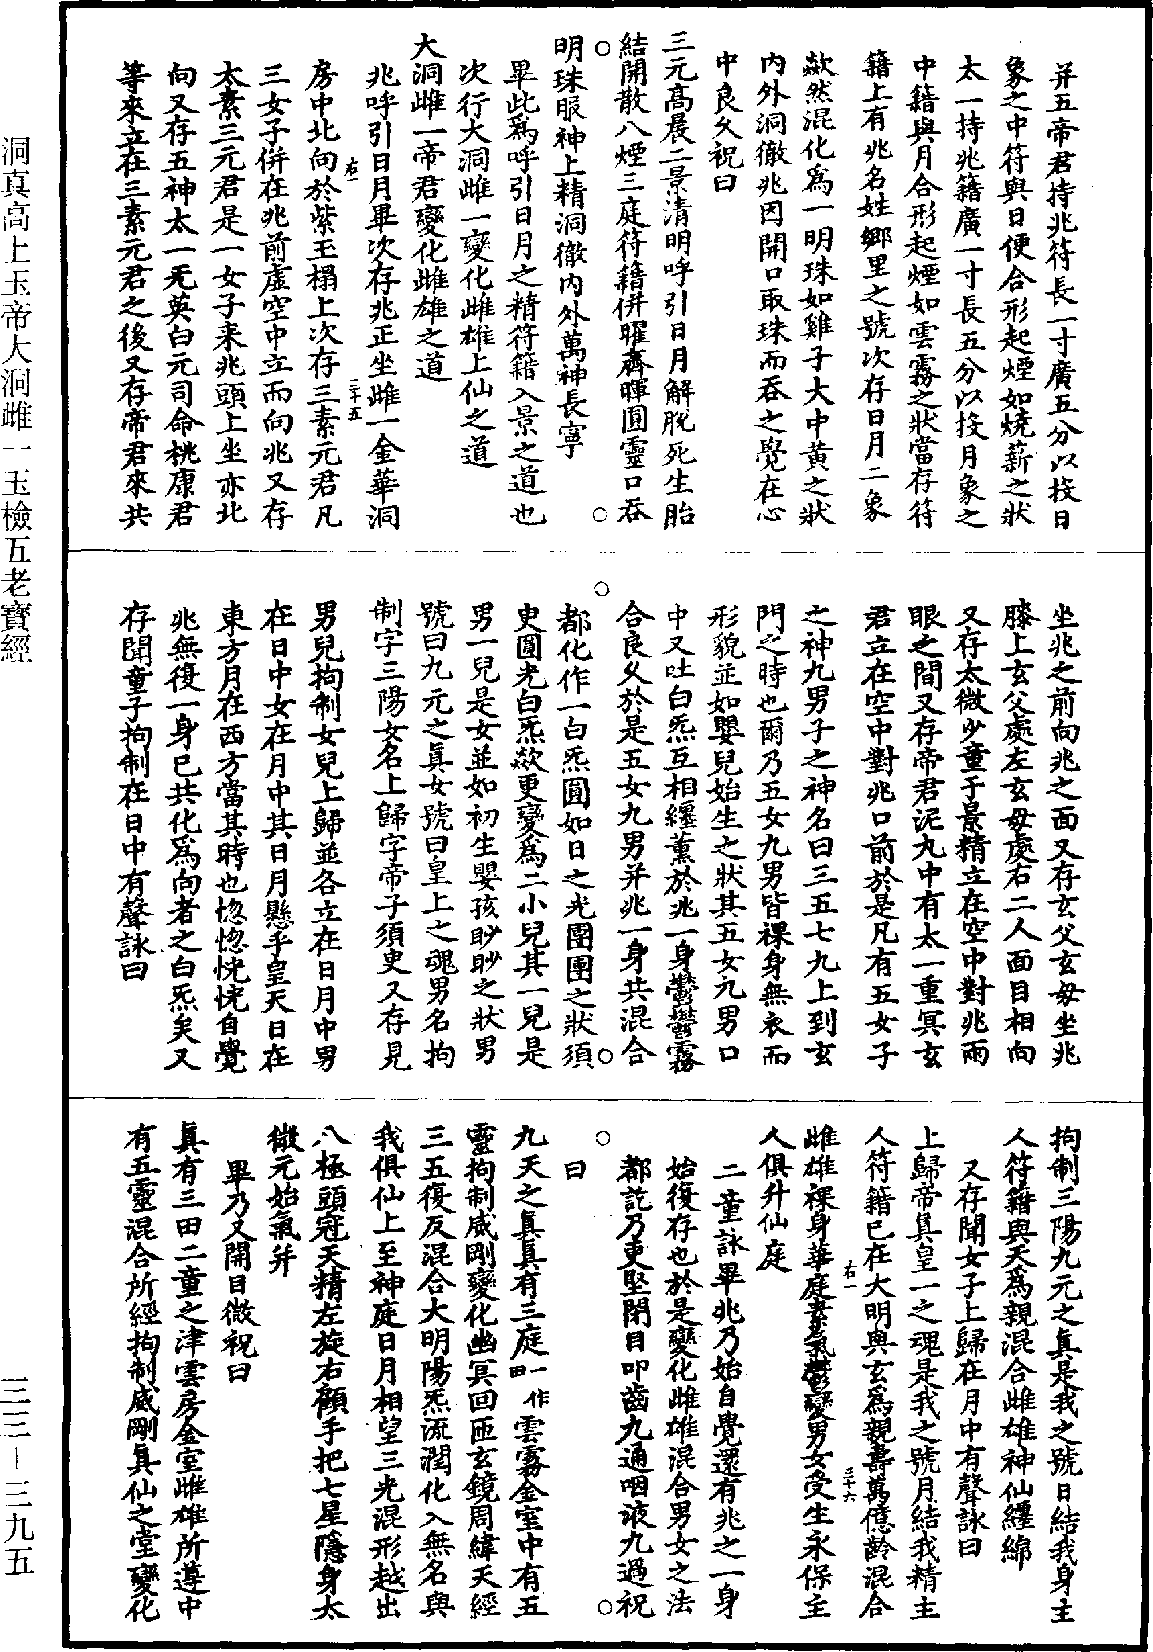 并五帝君持兆符長一寸廣五分以投日
象之中符與日便合形起煙如燒薪之狀
太一持兆籍廣一寸長五分以投月象之
中籍與月合形起煙如雲霧之狀當存符
籍上有兆名姓鄉里之號次存日月二象
歘然混化為一明珠如雞子大中黃之狀
內外洞徹兆因開口取珠而吞之覺在心
中良久祝曰
三元高晨二景清明呼引日月解脫死生胎
結開散八煙三庭符籍併曜齊暉圓靈口吞
明珠服神上精洞徹內外萬神長寧
畢此為呼引日月之精符籍入景之道也
次行大洞雌一變化雌雄上仙之道
大洞雌一帝君變化雌雄之道
兆呼引日月畢次存兆正坐雌一金華洞
房中北向於紫玉榻上次存三素元君凡
三女子併在兆前虛空中立而向兆又存
太素三元君是一女子來兆頭上坐亦北
向又存五神太一无英白元司命桃康君
等來立在三素元君之後又存帝君來共
右一
三十五
坐兆之前向兆之面又存玄父玄母坐兆
膝上玄父處左玄母處右二人面目相向
又存太微少童子景精立在空中對兆兩
眼之間又存帝君泥丸中有太一重冥玄
君立在空中對兆口前於是凡有五女子
之神九男子之神名曰三五七九上到玄
門之時也爾乃五女九男皆裸身無衣而
形貌並如嬰兒始生之狀其五女九男口
中又吐白炁互相纏薰於兆一身鬱鬱霧
合良久於是五女九男并兆一身共混合
都化作一白炁圓如日之光團團之狀須
臾圓光白炁歘更變為二小兒其一兒是
男一兒是女並如初生嬰孩眇眇之狀男
號曰九元之真女號曰皇上之魂男名拘
制字三陽女名上歸字帝子須臾又存見
男兒拘制女兒上歸並各立在日月中男
在日中女在月中其日月懸乎皇天日在
東方月在西方當其時也惚惚恍恍自覺
兆無復一身已共化為向者之白炁矣又
存聞童子拘制在日中有聲詠曰
拘制三陽九元之真是我之號日結我身主
人符籍與天為親混合雌雄神仙纏綿
又存聞女子上歸在月中有聲詠曰
上歸帝真皇一之魂是我之號月結我精主
人符籍已在大明與玄為親壽萬億齡混合
雌雄裸身華庭素氣鬱變男女受生永保主
人俱升仙庭
右一
三十六
二童詠畢兆乃始自覺還有兆之一身
始復存也於是變化雌雄混合男女之法
都訖乃更堅閉目叩齒九通咽液九過祝
曰
九天之真真有三庭一作田雲霧金室中有五
靈拘制威剛變化幽冥回匝玄鏡周緯天經
三五復反混合大明陽炁流潤化入無名與
我俱仙上至神庭日月相望三光混形越出
八極頭冠天精左旋右顧手把七星隱身太
微元始氣并
畢乃又開目微祝曰
真有三田二童之津雲房金室雌雄所遵中
有五靈混合所經拘制威剛真仙之堂變化
洞真高上玉帝大洞雌一玉檢五老寶經
三三—三九五